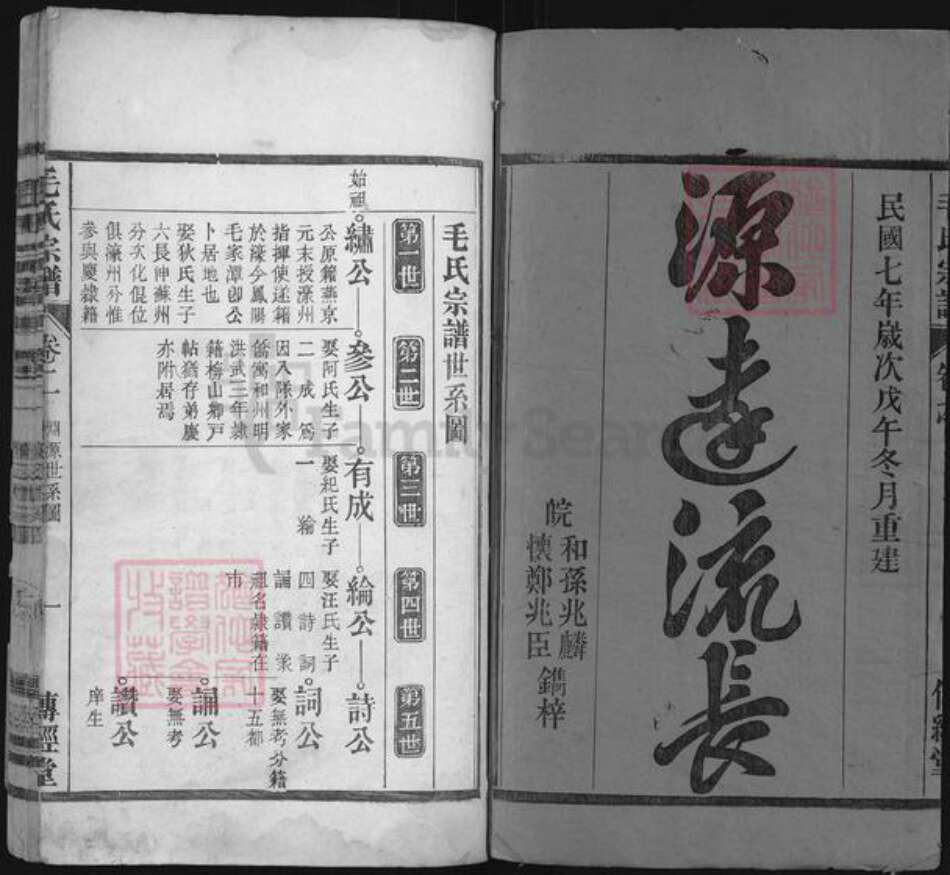 民國七年歲次戊午冬月重建
源遠流長
和孫兆麟
皖
懷鄭兆臣
鐫梓
毛氏宗譜世系圖
第一世
第二世
第三世
第四世
第五世
始祖
繡公
參公
有成
綸公
詩公
元末授濠州
指揮使遂籍
於濠今鳳陽
毛家潭卽公
卜居地也
娶狄氏生子
六長神蘇州
分次化倶位
俱濠州分惟
參與慶隸籍
娶阿氏生子
二 成 篤
因入隊外家
僑寓和州明
洪武三年隸
籍
山鄉戸
帖猶存弟慶
亦附居焉
娶紀氏生子
一 綸
娶汪氏生子
四 詩 詞
誦 讚 業
祖名隸籍在
市
詞公
娶無考分籍
十五都
誦公
娶無考
讚公
庠生
毛氏宗譜
卷二
世系圖
一
傳經堂
FamilySearch